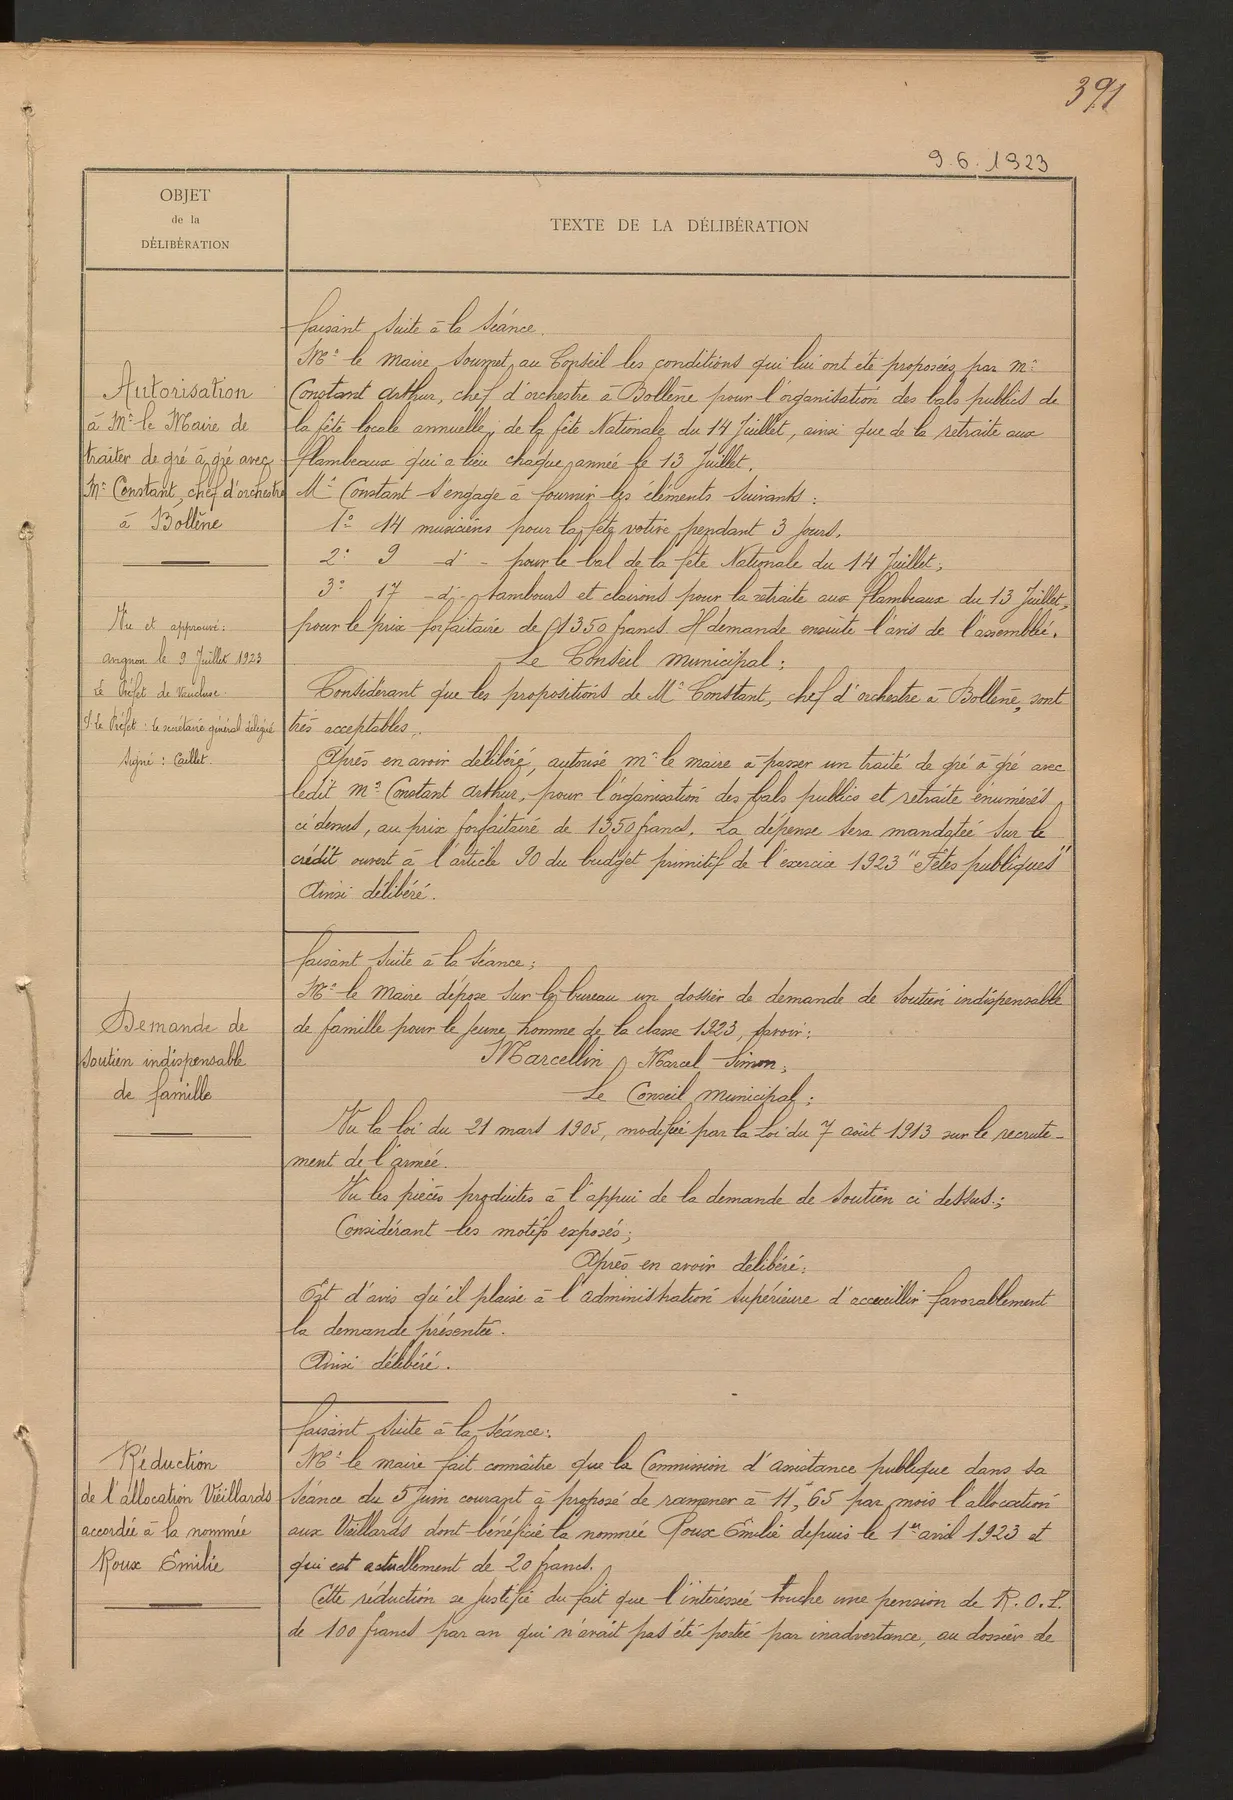 391
9.6.1923
OBJET
de la
DÉLIBÉRATION
TEXTE DE LA DÉLIBÉRATION
Autorisation
à Mr le Maire de
traiter de gré à gré avec
Mr Constant, chef d'orchestre
à Bollène
Vu et approuvé :
avignon le 9 Juillet 1923
Le Préfet de Vaucluse
P. Le Préfet : le secrétaire général délégué
Signé : Caillet.
faisant suite à la séance.
Mr le Maire soumet au Conseil les conditions qui lui ont été proposées par Mr
Constant Arthur, chef d'orchestre à Bollène pour l'organisation des bals publics de
la fête locale annuelle, de la fête Nationale du 14 Juillet, ainsi que de la retraite aux
flambeaux qui a lieu chaque année le 13 Juillet.
Mr Constant s'engage à fournir les éléments suivants :
1o 14 musiciens pour la fête votive pendant 3 jours.
2o 9 -d- pour le bal de la fête Nationale du 14 Juillet ;
3o 17 -d- tambours et clairons pour la retraite aux flambeaux du 13 Juillet,
pour le prix forfaitaire de 1350 francs. Il demande ensuite l'avis de l'assemblée.
Le Conseil municipal ;
Considérant que les propositions de Mr Constant, chef d'orchestre à Bollène, sont
très acceptables.
Après en avoir délibéré, autorise Mr le maire à passer un traité de gré à gré avec
ledit Mr Constant Arthur, pour l'organisation des bals publics et retraite énumérés
ci dessus, au prix forfaitaire de 1350 francs. La dépense sera mandatée sur le
crédit ouvert à l'article 90 du budget primitif de l'exercice 1923 "Fêtes publiques"
Ainsi délibéré.
Demande de
soutien indispensable
de famille
faisant suite à la séance ;
Mr le Maire dépose sur le bureau un dossier de demande de soutien indispensable
de famille pour le jeune homme de la classe 1923, savoir :
Marcellin Marcel Simon ;
Le Conseil municipal ;
Vu la loi du 21 mars 1905, modifiée par la Loi du 7 août 1913 sur le recrute-
ment de l'armée.
Vu les pièces produites à l'appui de la demande de soutien ci dessus ;
Considérant les motifs exposés ;
Après en avoir délibéré ;
Est d'avis qu'il plaise à l'administration supérieure d'accueillir favorablement
la demande présentée.
Ainsi délibéré.
Réduction
de l'allocation Vieillards
accordée à la nommée
Roux Emilie
faisant suite à la séance :
Mr le maire fait connaitre que la Commission d'assistance publique dans sa
séance du 5 Juin courant à proposé de ramener à 11,65 par mois l'allocation
aux Vieillards dont bénéficie la nommée Roux Emilie depuis le 1er avril 1923 et
qui est actuellement de 20 francs.
Cette réduction se justifie du fait que l'intéressée touche une pension de R.O.P.
de 100 francs par an qui n'avait pas été portée par inadvertance, au dossier de